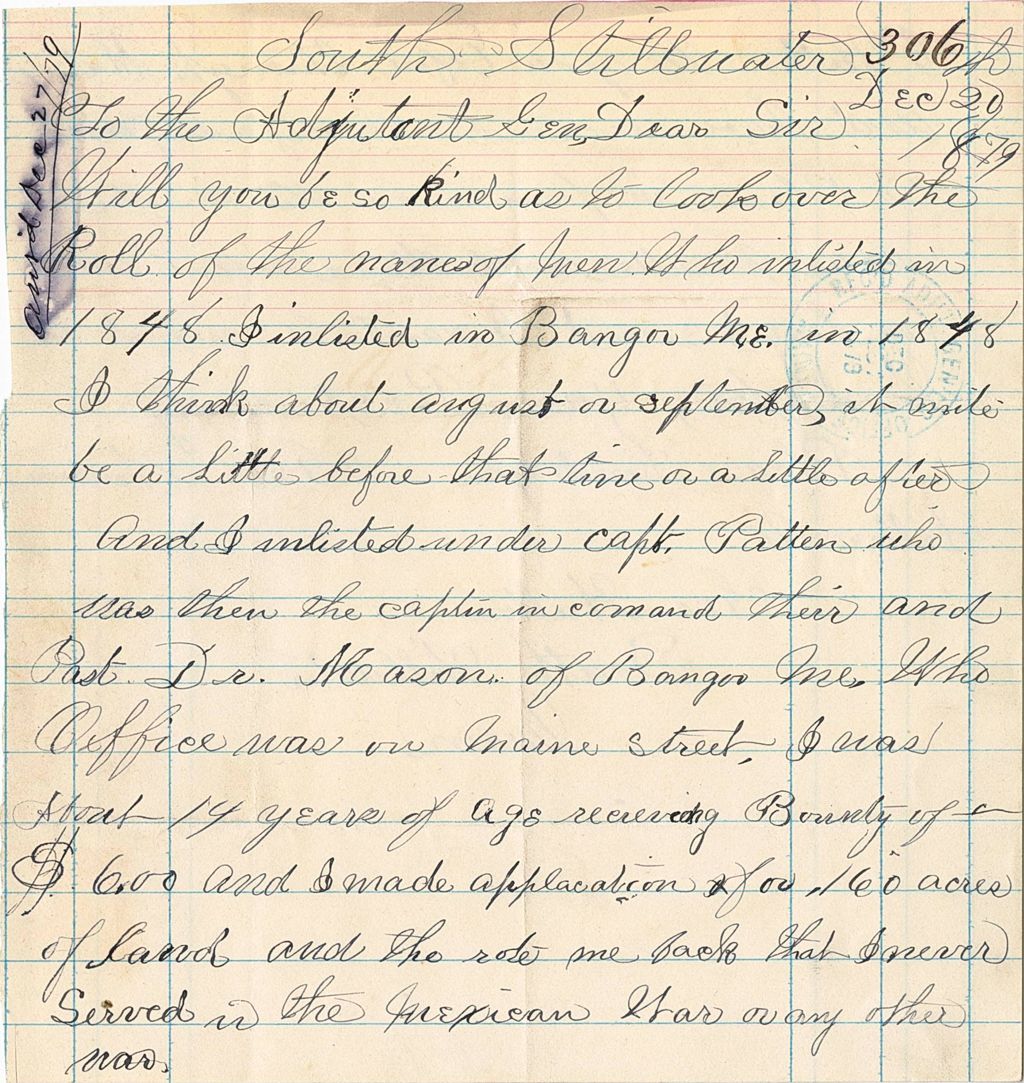 South Stillwater
306
Dec 20th
1879
Answ'd Dec 27/79
To the Adjutant Gen, Dear Sir
Will you be so Kind as to look over the
Roll of the names of men Who inlisted in
1848 I inlisted in Bangor Me. in 1848
I think about august or september, it mite
be a little before that time or a little after
And I inlisted under capt. Patten who
was then the captin in comand their and
Past Dr. Mason. of Bangor Me. Who
Oeffice was on Maine street, I was
About 14 years of age recieving Bounty of
$ 6.00 and I made applacation for 160 acres
of land and the rote me back that I never
Served in the Mexican War or any other
war.
REC'D ADJT. GEN'S
OFFICE
DEC
79